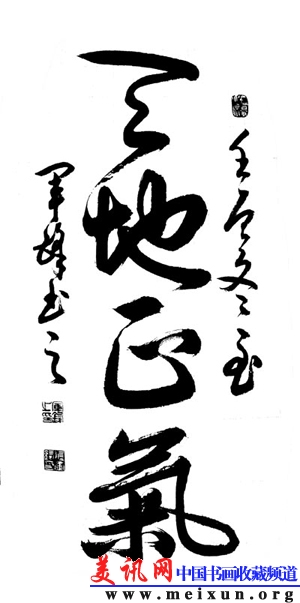 天地正氣
軍鋒书之
美讯网 中国书画收藏频道
www.meixun.org